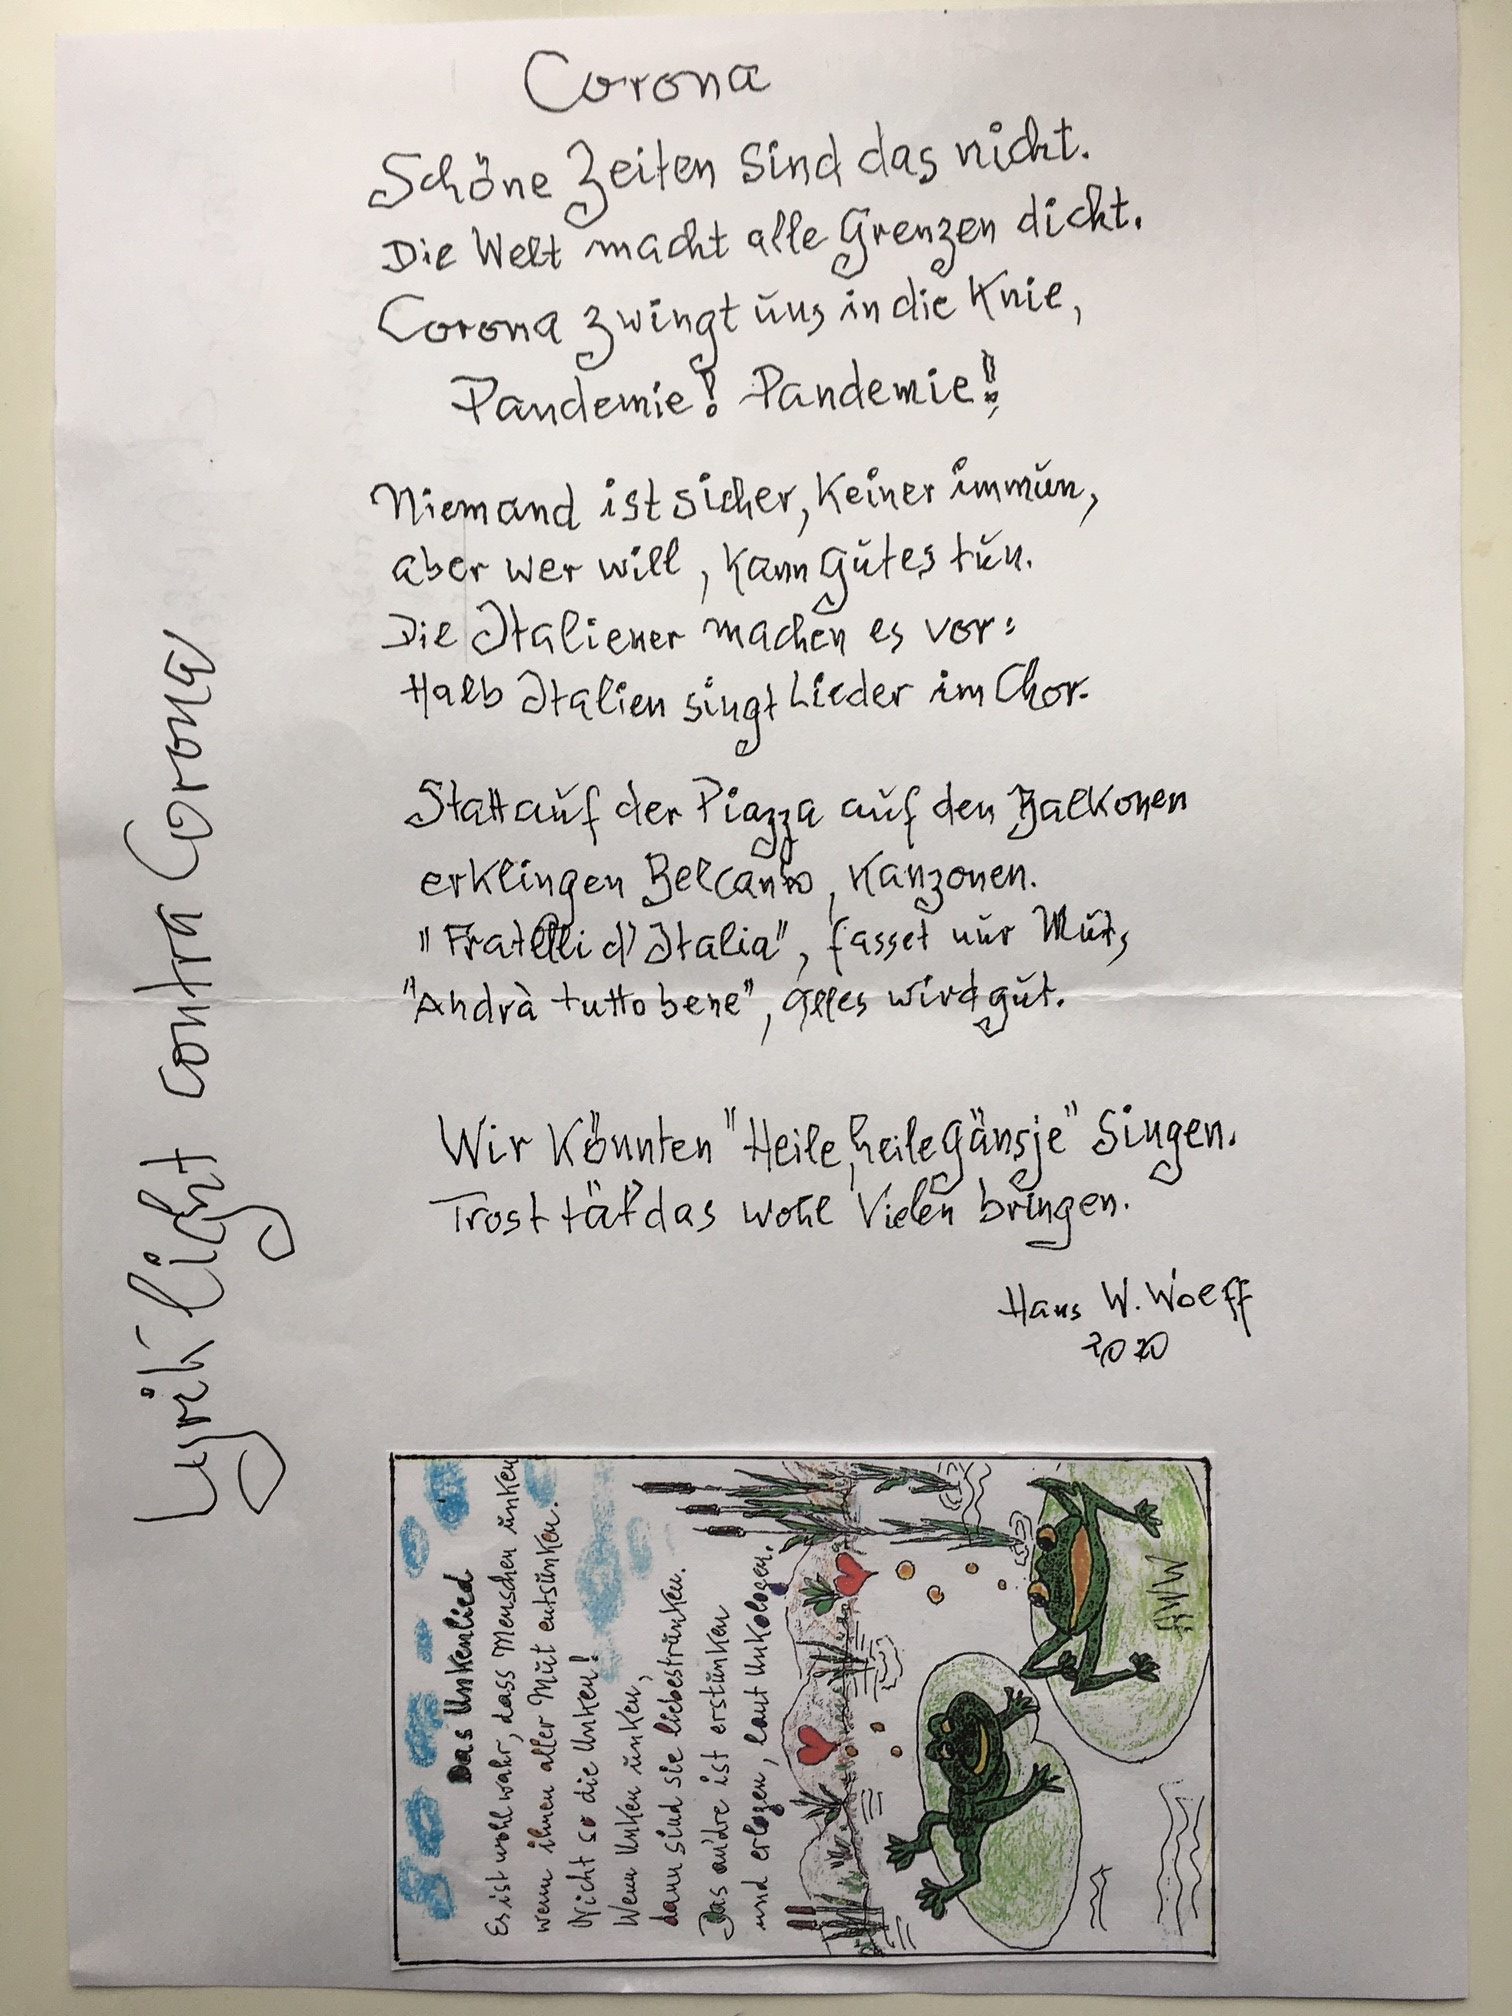 Corona
Schöne Zeiten sind das nicht.
Die Welt macht alle Grenzen dicht.
Corona zwingt uns in die Knie,
Pandemie! Pandemie!!
Niemand ist sicher, Keiner immun,
aber wer will, kann Gutes tun.
Die Italiener machen es vor:
Halb Italien singt Lieder im Chor.
Statt auf der Piazza auf den Balkonen
erklingen Belcanto, Kanzonen.
"Fratelli d'Italia", fasset nur Mut,
"Andrà tutto bene", alles wird gut.
Wir könnten "Heile, heile Gänsje" singen.
Trost tät' das wohl Vielen bringen.
Hans W. Wolff
2020
Lyrik light contra Corona
Das Unkenlied
Es ist wohl wahr, dass Menschen unken
wenn ihnen aller Mut entsunken.
Nicht so die Unken!
Wenn Unken unken,
dann sind sie liebestrunken.
Das an'dre ist erstunken
und erlogen, laut Unkologen.
HWW